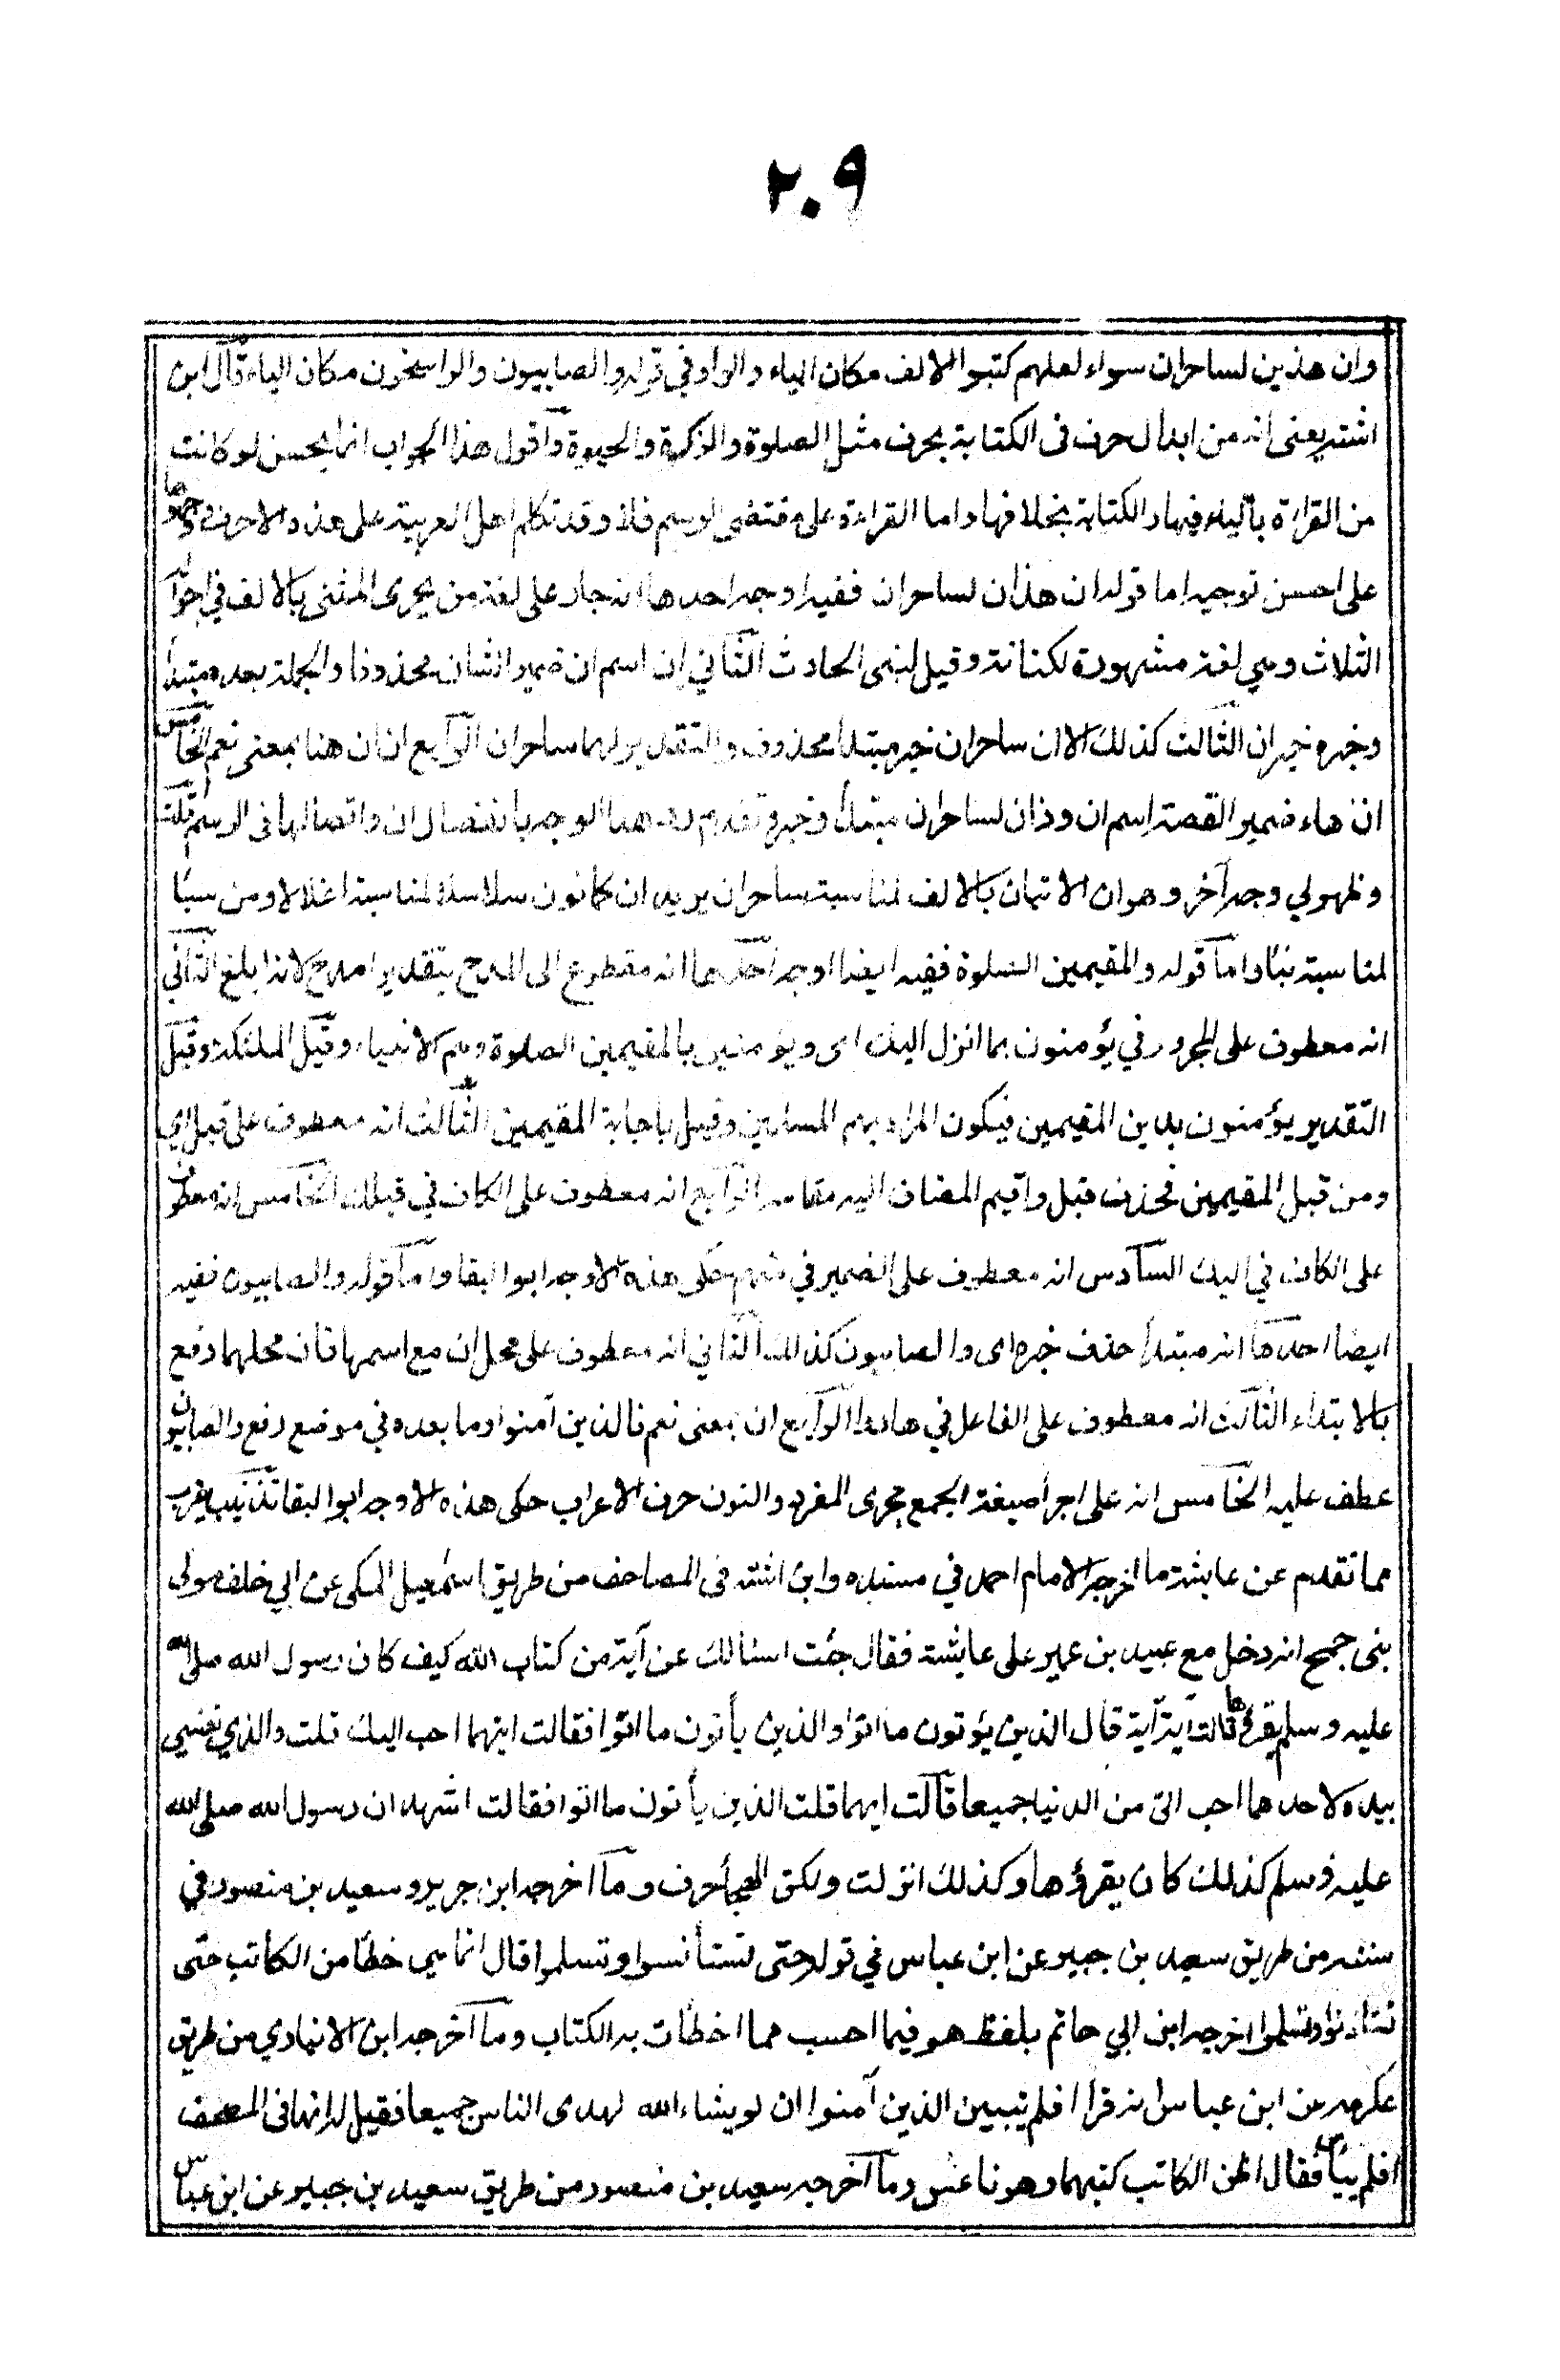 ٢٠٩
وان هذين لساحران سواء لعلهم كتبوا الالف مكان الياء والواو في قوله والصابيون والراسخون مكان الياء قال ابن
اشته يعنى انه من ابدال حرف فى الكتابة بحرف مثل الصلوة والزكوة والحيوة واقول هذا الجواب انما يحسن لو كانت
من القراءة بالياء فيها والكتابة بخلافها واما القراءة على مقتضى الرسم فلا وقد تكلم اهل العربية على هذه الاحرف ووجهوها
على احسن توجيه اما قوله ان هذان لساحران ففيه اوجه احدها انه جار على لغة من يجرى المثنى بالالف في احواله
الثلاث وهي لغة مشهورة لكنانة وقيل لبنى الحارث الثاني ان اسم ان ضمير الشان محذوفا والجملة بعده مبتدأ
وخبره خبر ان الثالث كذلك الا ان ساحران خبر مبتدأ محذوف والتقدير لهما ساحران الرابع ان ان هنا بمعنى نعم الخامس
ان ها ء ضمير القصة اسم ان وذان لساحران مبتدأ وخبر وتقدم رد هذا الوجه بانفصال ان واتصالها فى الرسم قلت
وظهر لي وجه آخر وهو ان الاتيان بالالف لمناسبة ساحران يريدان كما نون سلاسلا لمناسبة اغلالا ومن سبأ
لمناسبة نبأ واما قوله والمقيمين الصلوة ففيه ايضا اوجه احدها انه مقطوع الى المدح بتقدير امدح لانه ابلغ الثاني
انه معطوف على المجرور في يؤمنون بما انزل اليك اى ويؤمنون بالمقيمين الصلوة وهم الانبياء وقيل الملئكة وقيل
التقدير يؤمنون بدين المقيمين فيكون المراد بهم المسلمين وقيل باجابة المقيمين الثالث انه معطوف على قبل اي
ومن قبل المقيمين فحذف قبل واقيم المضاف اليه مقامه الرابع انه معطوف على الكاف في قبلك الخامس انه معطوف
على الكاف في اليك السادس انه معطوف على الضمير في منهم حكى هذه الاوجه ابو البقا واما قوله والصابيون ففيه
ايضا احدها انه مبتدأ حذف خبره اى والصابيون كذلك الثاني انه معطوف على محل ان مع اسمها فان محلهما رفع
بالابتداء الثالث انه معطوف على الفاعل في هادوا الرابع ان ان بمعنى نعم فالذين آمنوا وما بعده في موضع رفع والصابيون
عطف عليه الخامس انه على اجرأ صيغة الجمع مجرى المفرد والنون حرف الاعراب حكى هذه الاوجه ابو البقا تذنيب يقرب
مما تقدم عن عايشة ما اخرجه الامام احمد في مسنده وابن اشته فى المصاحف من طريق اسمعيل المكى عن ابي خلف مولى
بنى جمح انه دخل مع عبيد بن عمير على عايشة فقال جئت اسئالك عن آية من كتاب الله كيف كان رسول الله صلى الله
عليه وسلم يقرؤها قالت اية آية قال الذين يؤتون ما اتوا والذين يأتون ما اتوا فقالت ايتهما احب اليك قلت والذي نفسي
بيده لاحدهما احب الىّ من الدنيا جميعا قالت ايهما قلت الذين يأتون ما اتوا فقالت اشهد ان رسول الله صلى الله
عليه وسلم كذلك كان يقرؤها وكذلك انزلت ولكن الهجأ حرف وما اخرجه ابن جرير وسعيد بن منصور في
سننه من طريق سعيد بن جبير عن ابن عباس في قوله حتى تستأنسوا وتسلموا قال انما هي خطأ من الكاتب حتى
تستاذنوا وتسلموا اخرجه ابن ابي حاتم بلفظ هو فيما احسب مما اخطأت به الكتاب وما اخرجه ابن الانباري من طريق
عكرمه عن ابن عباس انه قرأ افلم يتبين الذين آمنوا ان لو يشاء الله لهدى الناس جميعا فقيل له انها فى المصحف
افلم ييأس فقال اظن الكاتب كتبها وهو ناعس وما اخرجه سعيد بن منصور من طريق سعيد بن جبير عن ابن عباس